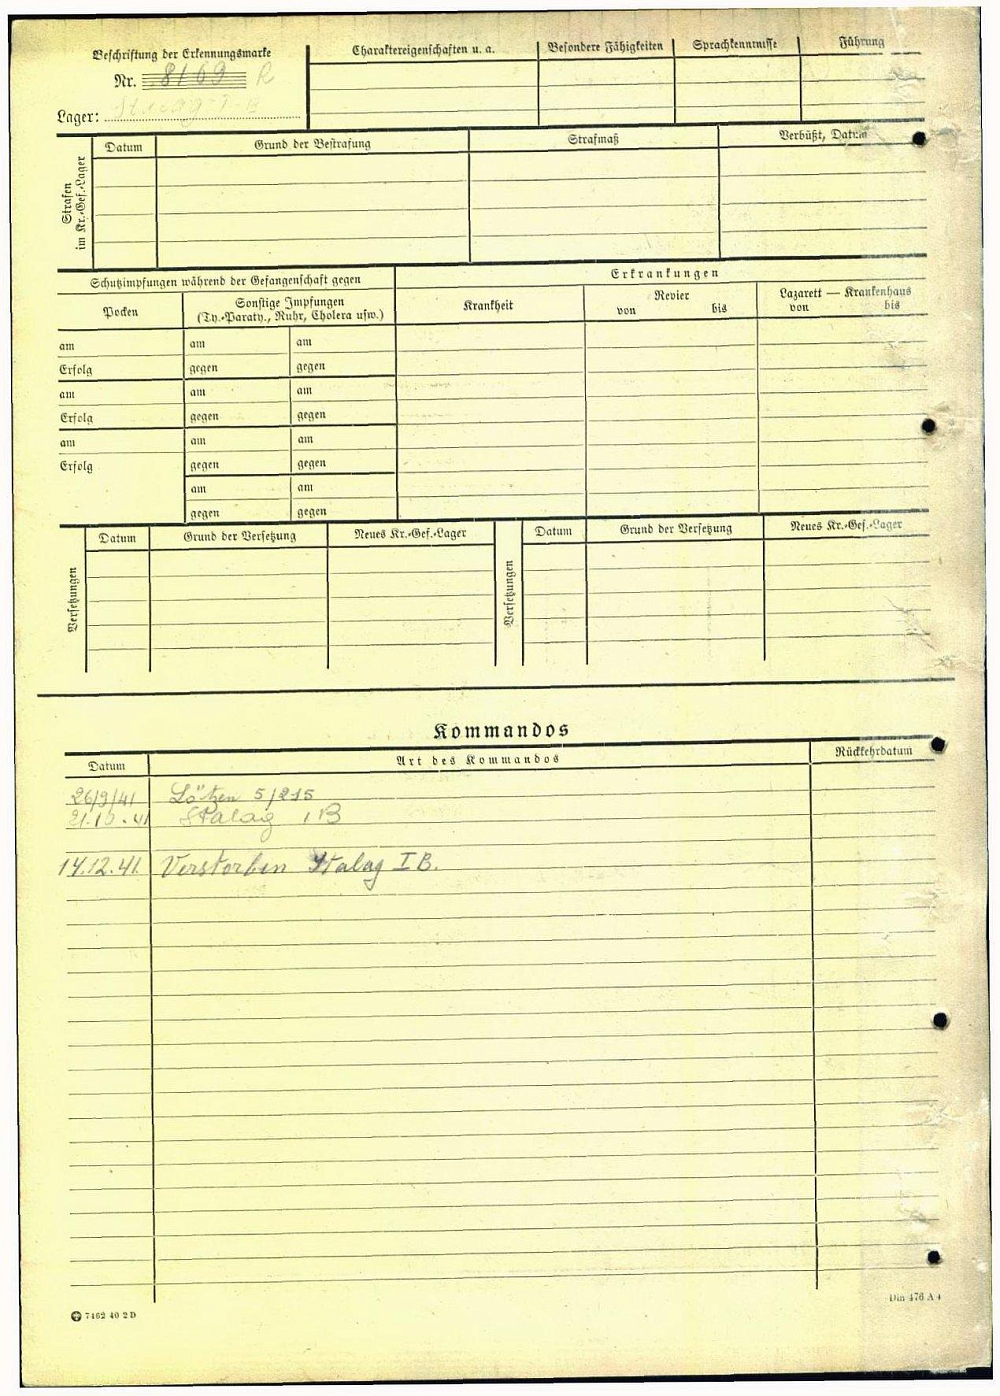 Beschriftung der Erkennungsmarke
Nr. 8169 R
Lager: Stalag I-B
Charaktereigenschaften u. a.
Besondere Fähigkeiten
Sprachkenntnisse
Führung
Strafen im Kr.-Gef.-Lager
Datum
Grund der Bestrafung
Strafmaß
Verbüßt, Datum
Schutzimpfungen während der Gefangenschaft gegen
Erkrankungen
Pocken
Sonstige Impfungen
(Ty.-Paraty., Ruhr, Cholera usw.)
Krankheit
Revier
von bis
Lazarett — Krankenhaus
von bis
am am am
Erfolg gegen gegen
am am am
Erfolg gegen gegen
am am am
Erfolg gegen gegen
am am
gegen gegen
Versetzungen
Datum
Grund der Versetzung
Neues Kr.-Gef.-Lager
Versetzungen
Datum
Grund der Versetzung
Neues Kr.-Gef.-Lager
Kommandos
Datum
Art des Kommandos
Rückkehrdatum
26/9/41 Lötzen 5/215
21.10.41 Stalag IB
14.12.41. Verstorben Stalag I B.
7462 40 2 D
Din 476 A 4